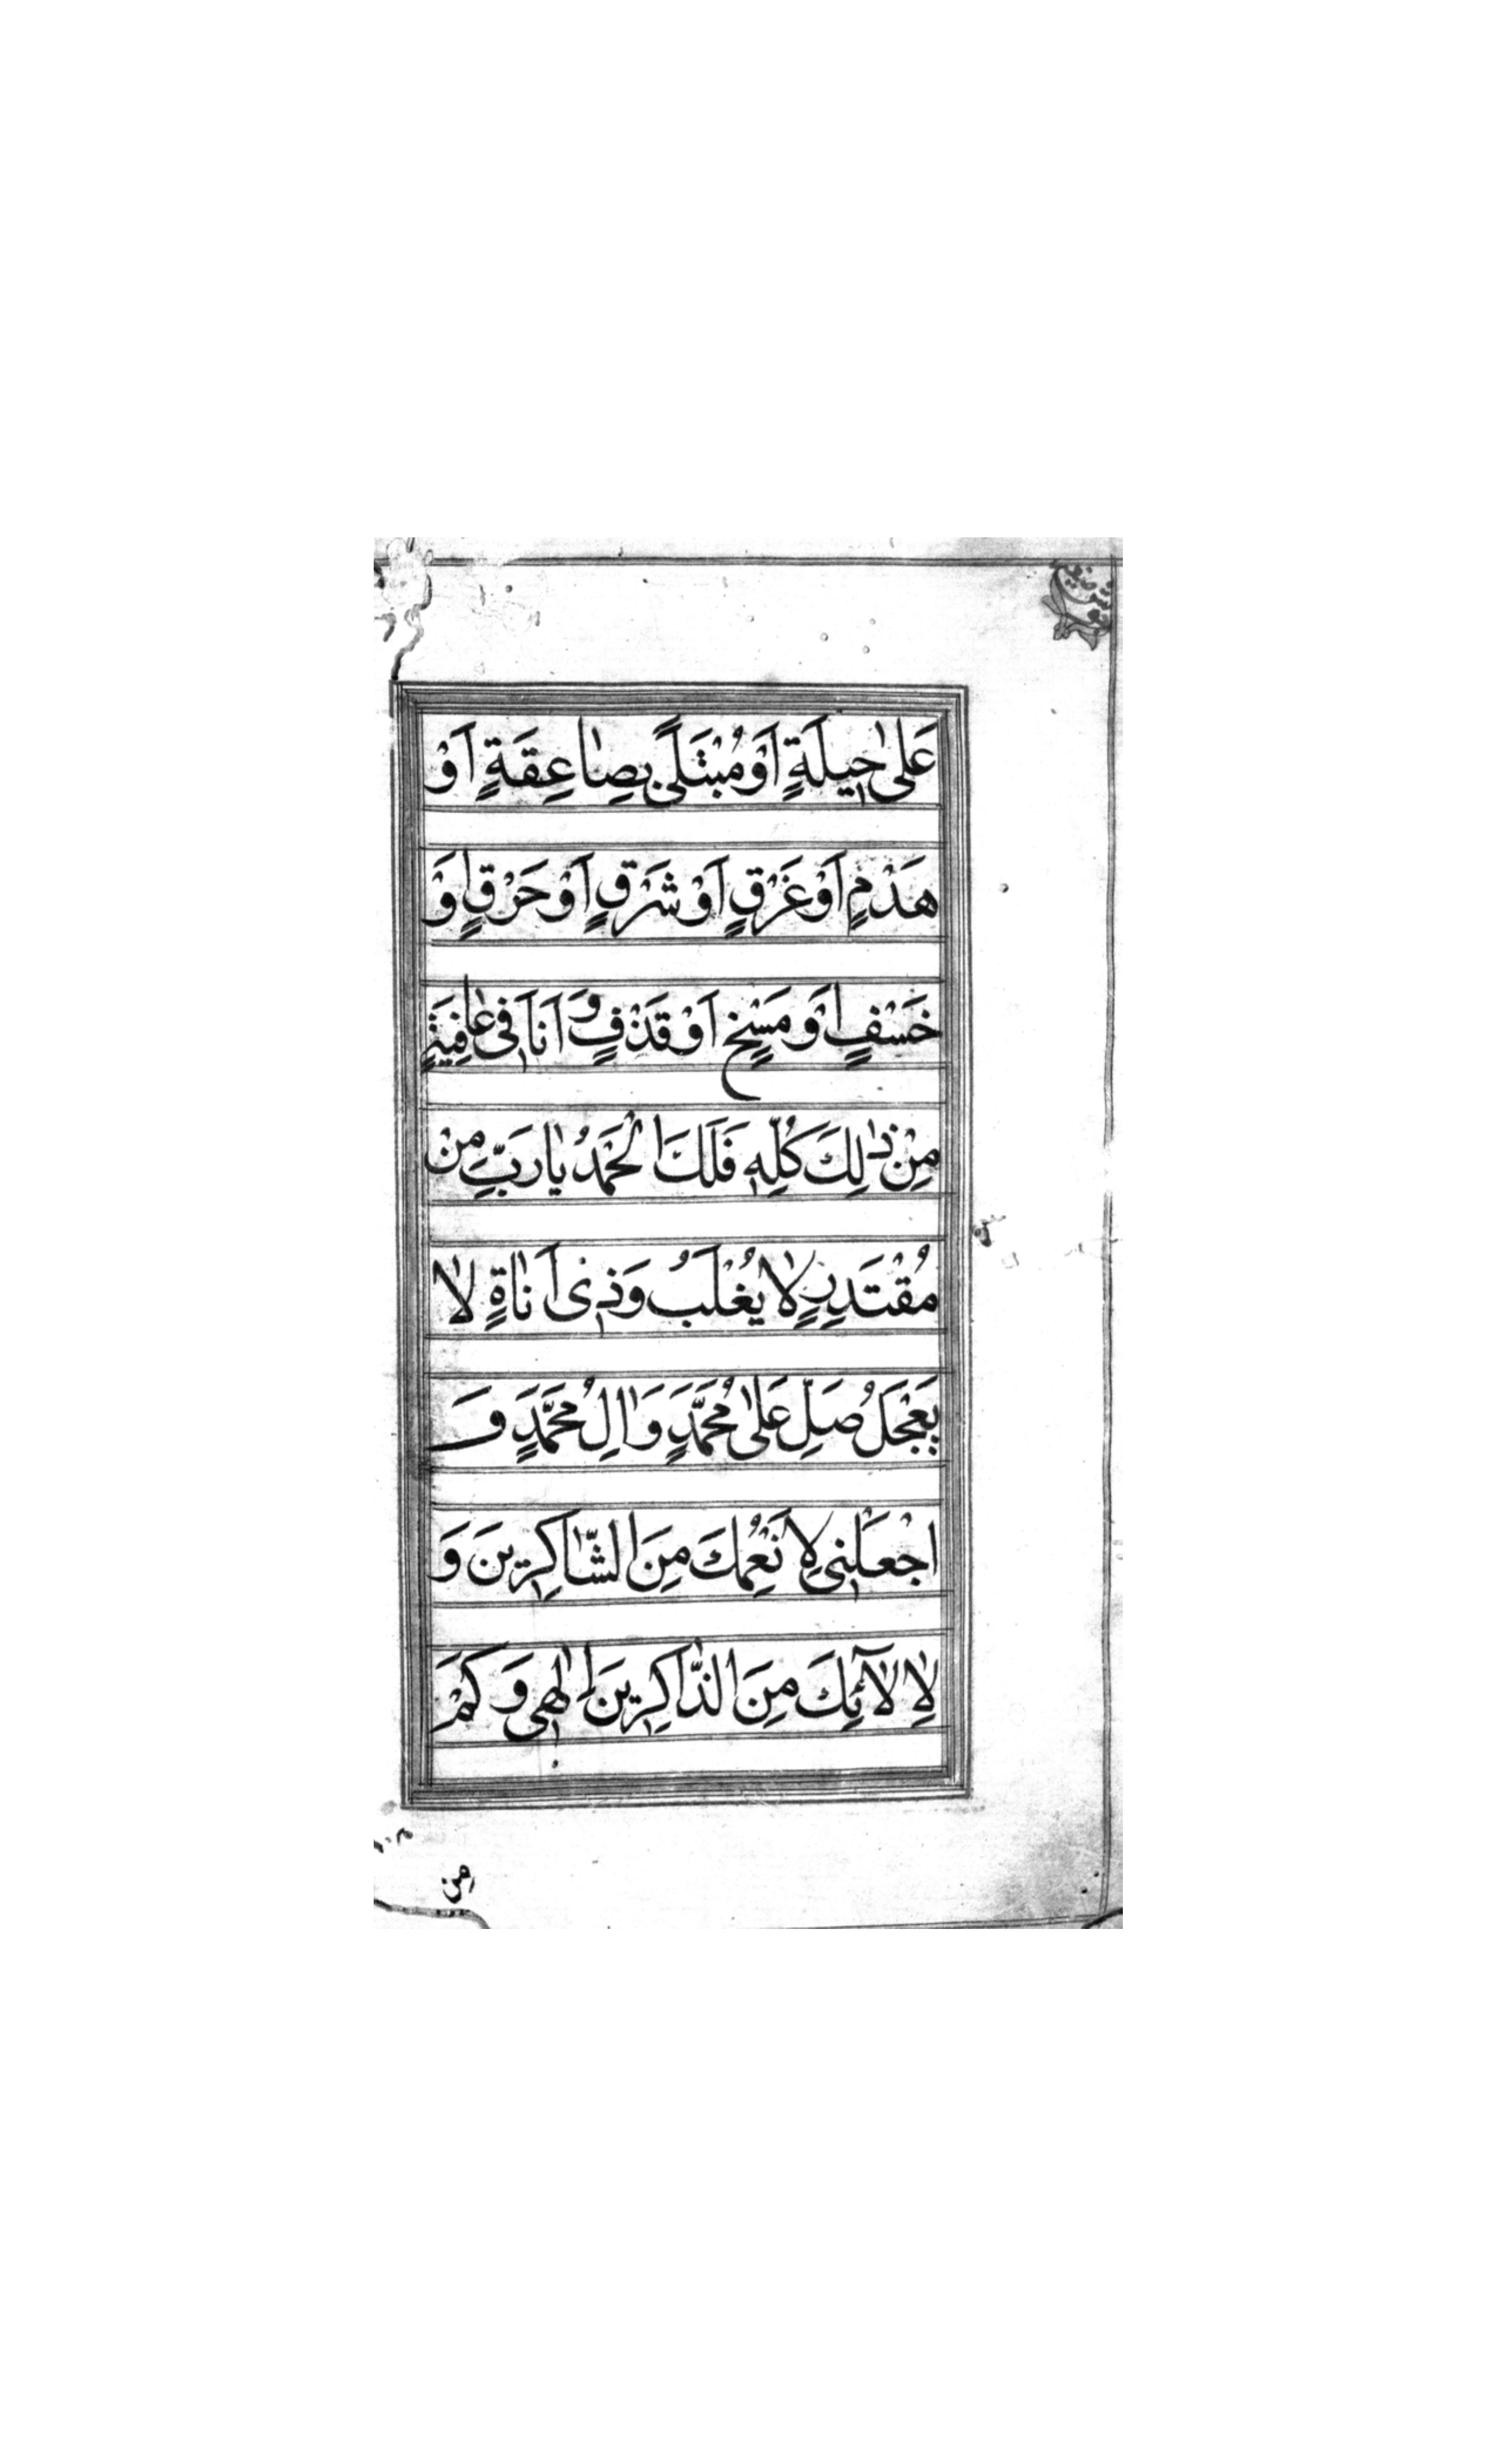 عَلىٰ حِيلَةٍ اَوْ مُبْتَلىً بِصٰاعِقَةٍ اَوْ
هَدْمٍ اَوْ غَرْقٍ اَوْ شَرْقٍ اَوْ حَرْقٍ اَوْ
خَسْفٍ اَوْ مَسْخٍ اَوْ قَذْفٍ وَ اَنَا فِى عٰافِيَةٍ
مِنْ ذٰلِكَ كُلِّهِ فَلَكَ الْحَمْدُ يٰا رَبِّ مِنْ
مُقْتَدِرٍ لٰا يُغْلَبُ وَذِى اَنٰاةٍ لٰا
يَعْجَلُ صَلِّ عَلىٰ مُحَمَّدٍ وَاٰلِ مُحَمَّدٍ وَ
اجْعَلْنِى لِاَنْعُمِكَ مِنَ الشّٰاكِرِينَ وَ
لِاٰلآئِكَ مِنَ الذّٰاكِرِينَ اِلٰهِى وَكَمْ